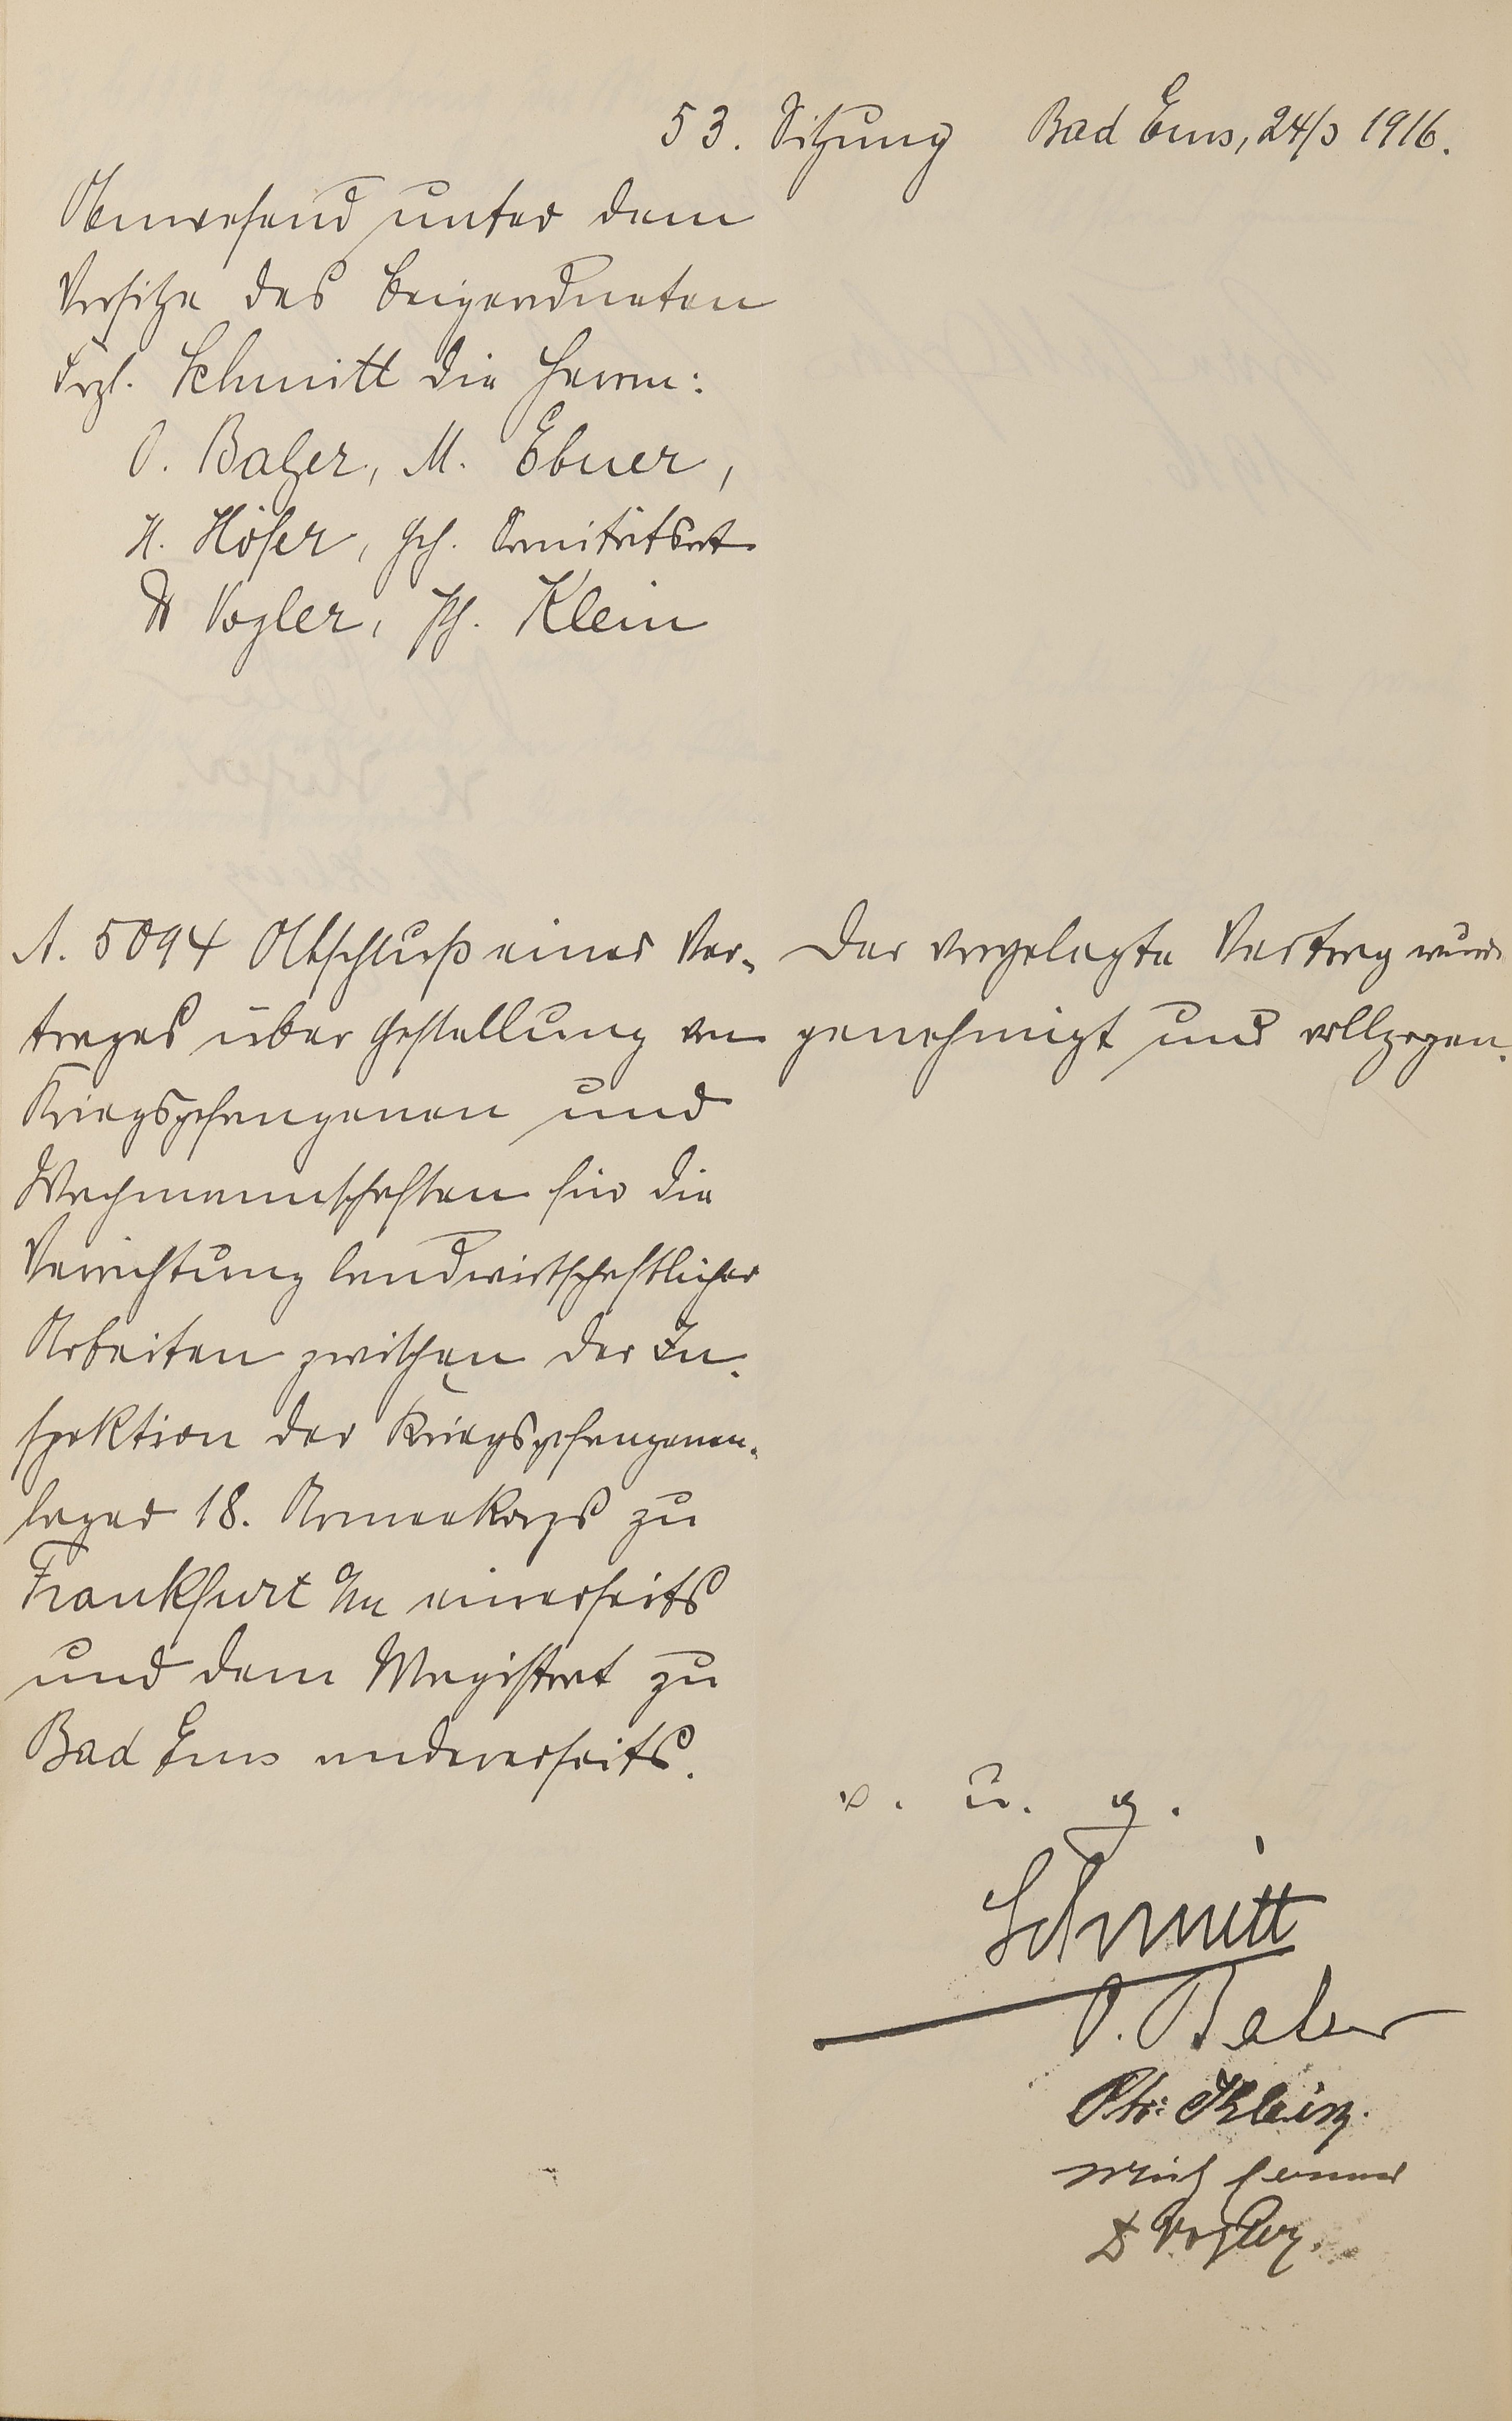 53. Sitzung Bad Ems, 24/3 1916.
Anwesend unter dem
Vorsitze des Beigeordneten
Frz. Schmitt die Herren:
O. Balzer, M. Ebner,
H. Höfer, Geh. Sanitätsrat
Dr Vogler, Ph. Klein
A. 5094 Abschluß eines Ver-
trages über Gestellung von
Kriegsgefangenen und
Wachmannschaften für die
Verrichtung landwirtschaftlicher
Arbeiten zwischen der In-
spektion der Kriegsgefangenen-
lager 18. Armeekorps zu
Frankfurt a/M einerseits
und dem Magistrat zu
Bad Ems andererseits.
Der vorgelegte Vertrag wurde
genehmigt und vollzogen.
v. u. g.
Schmitt
O. Balzer
Ph: Klein.
Mich Ebner
Dr Vogler.